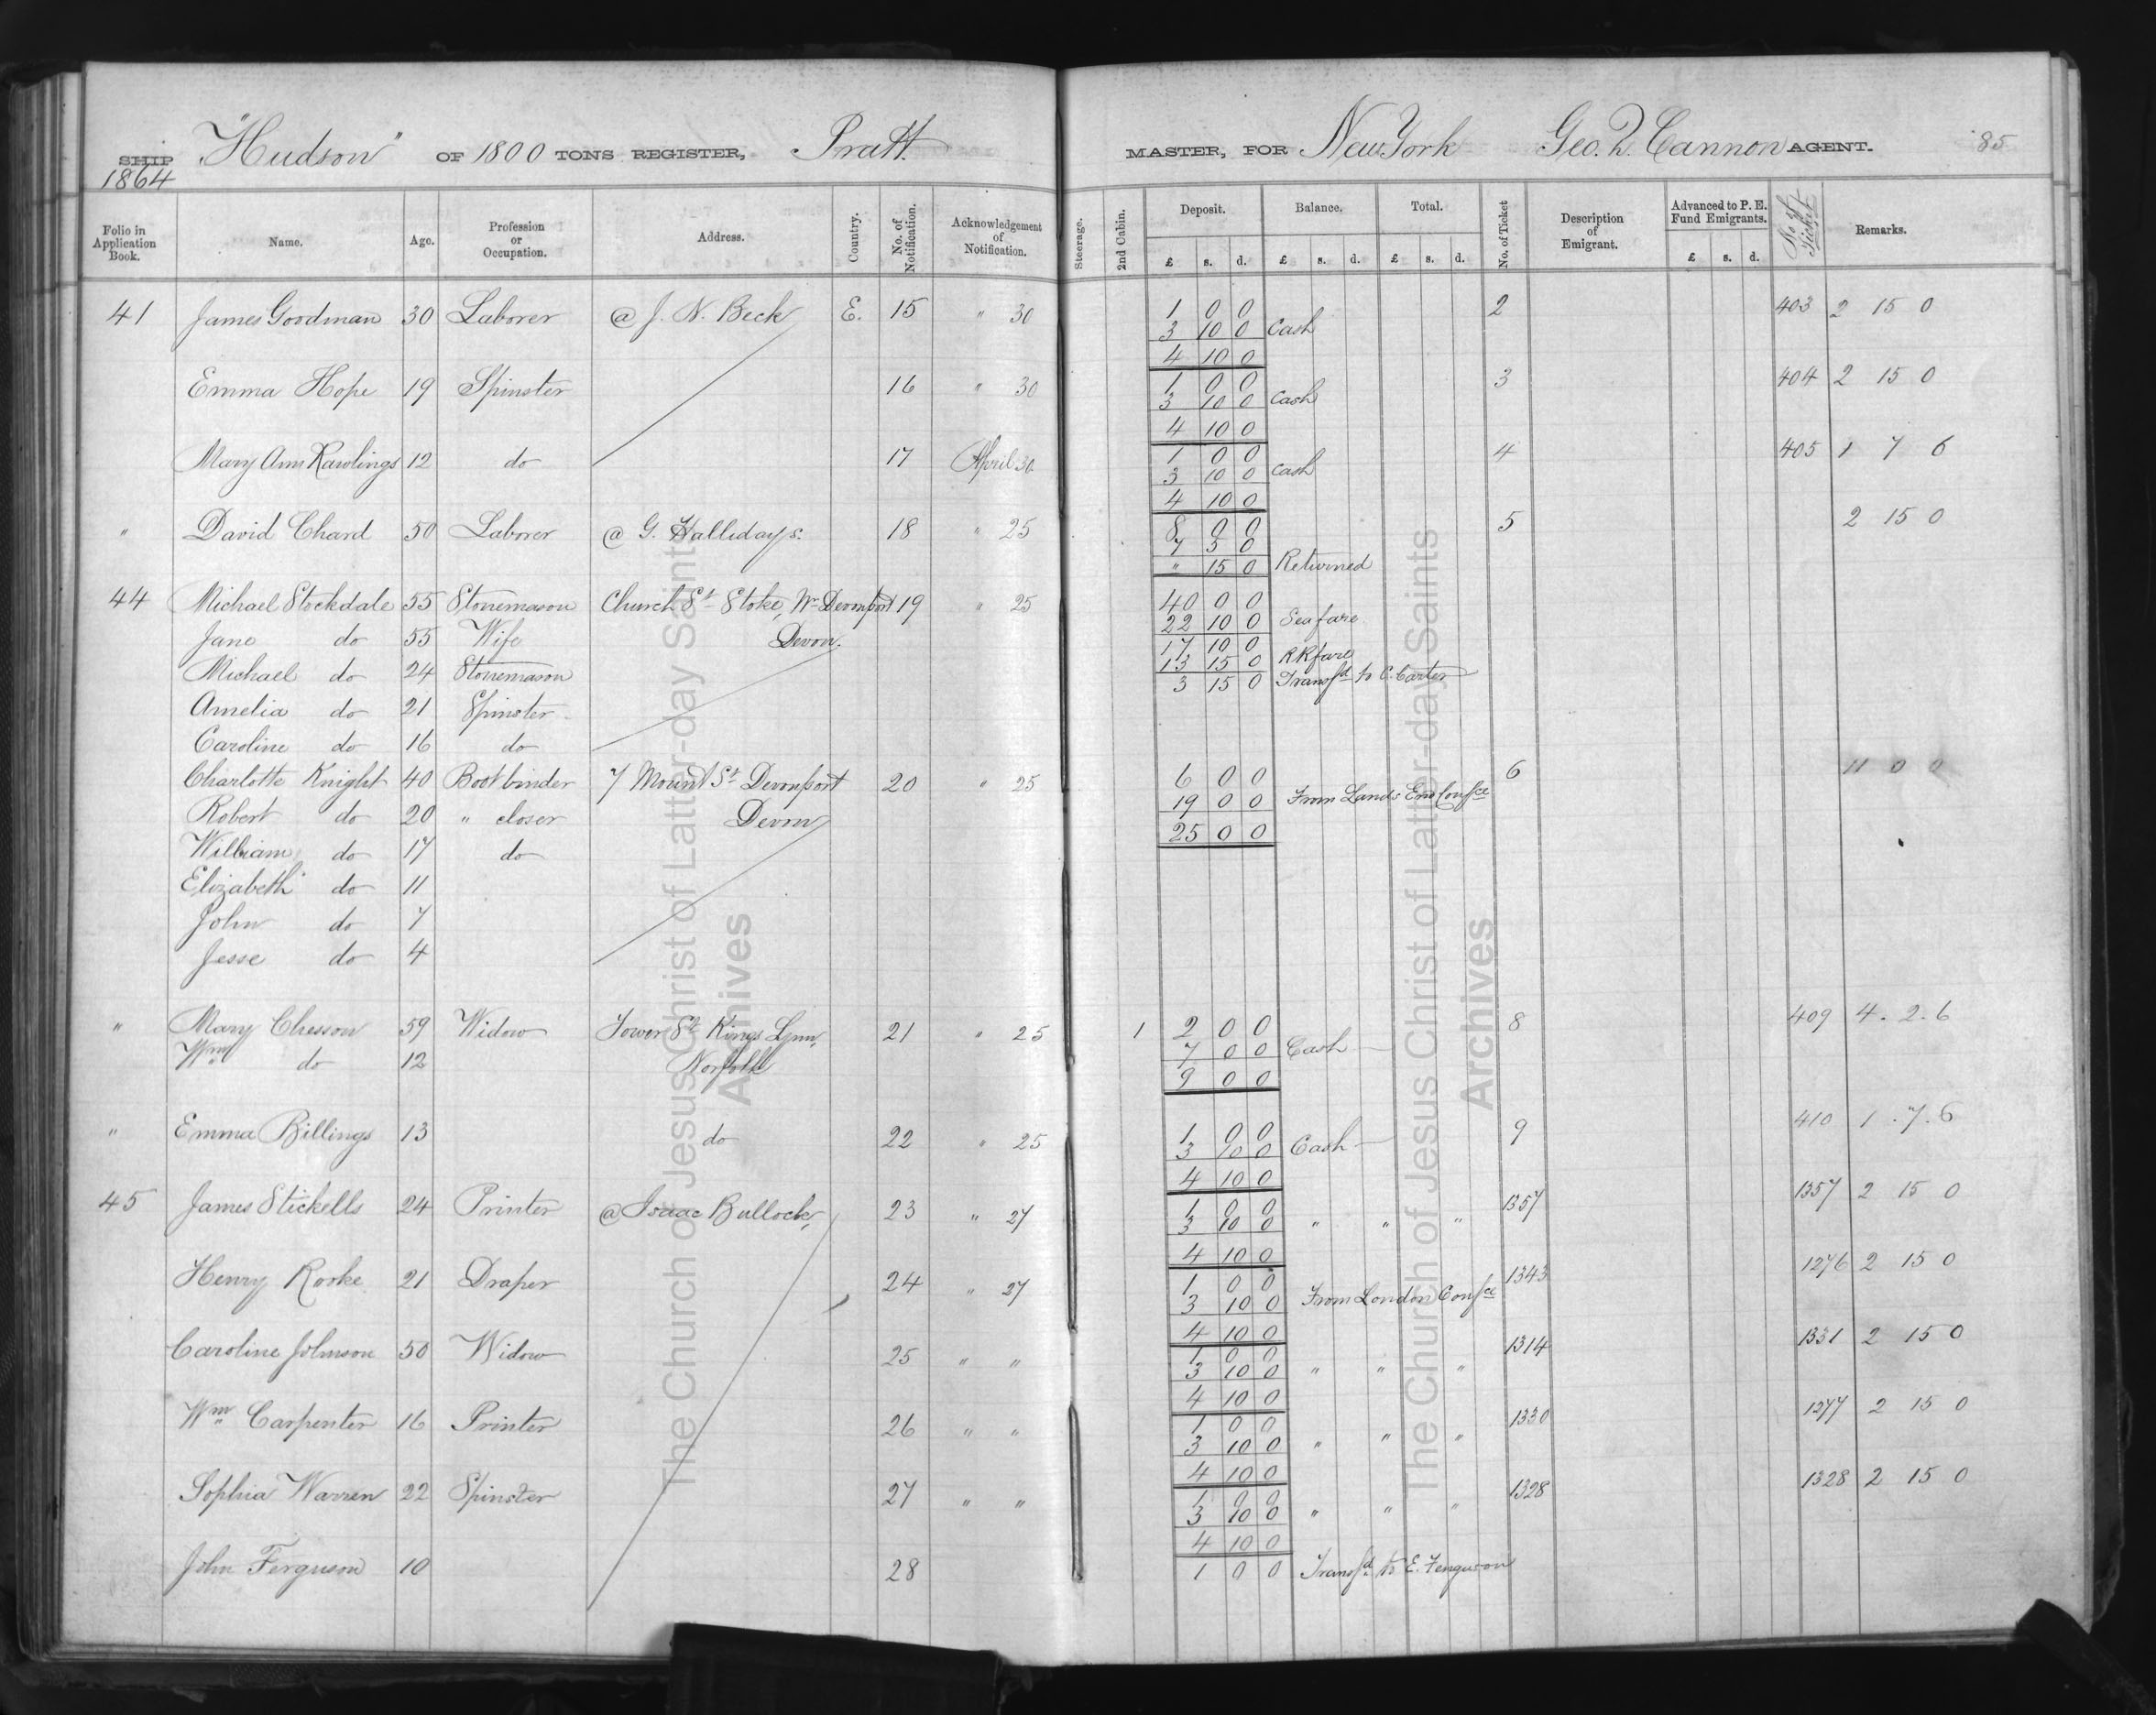 SHIP "Hudson" OF 1800 TONS REGISTER, Pratt MASTER, FOR New York Geo. Q. Cannon AGENT. 85
1864
Folio in Application Book. Name. Age. Profession or Occupation. Address. Country. No. of Notification. Acknowledgement of Notification. Steerage. 2nd Cabin. Deposit. Balance. Total. No. of Ticket Description of Emigrant. Advanced to P. E. Fund Emigrants. No of Ticket Remarks.
£ s. d. £ s. d. £ s. d. £ s. d.
41 James Goodman 30 Laborer @ J. N. Beck E. 15 " 30 1 0 0 2 403 2 15 0
3 10 0 Cash
4 10 0
Emma Hope 19 Spinster 16 " 30 1 0 0 3 404 2 15 0
3 10 0 Cash
4 10 0
Mary Ann Rawlings 12 do 17 April 30 1 0 0 4 405 1 7 6
3 10 0 Cash
4 10 0
" David Chard 50 Laborer @ G. Hallidays. 18 " 25 8 0 0 5 2 15 0
7 5 0
" 15 0 Returned
44 Michael Stockdale 55 Stonemason Church St Stoke, Nr Devonport 19 " 25 40 0 0
22 10 0 Sea fare
Jane do 55 Wife Devon. 17 10 0
13 15 0 RR fare
Michael do 24 Stonemason 3 15 0 Transfd to C. Carter
Amelia do 21 Spinster
Caroline do 16 do
Charlotte Knight 40 Boot binder 7 Mount St Devonport 20 " 25 6 0 0 6 11 0 0
19 0 0 From Lands End Confce
Robert do 20 " closer Devon 25 0 0
William do 17 do
Elizabeth do 11
John do 7
Jesse do 4
" Mary Chesson 59 Widow Tower St Kings Lynn, 21 " 25 1 2 0 0 8 409 4. 2. 6
Wm do 12 Norfolk 7 0 0 Cash
9 0 0
" Emma Billings 13 do 22 " 25 1 0 0 9 410 1. 7. 6
3 10 0 Cash
4 10 0
45 James Stickells 24 Printer @ Isaac Bullock, 23 " 27 1 0 0 1357 1357 2 15 0
3 10 0 " " "
4 10 0
Henry Rooke 21 Draper 24 " 27 1 0 0 1343 1276 2 15 0
3 10 0 From London Confce
4 10 0
Caroline Johnson 50 Widow 25 " " 1 0 0 1314 1331 2 15 0
3 10 0 " " "
4 10 0
Wm Carpenter 16 Printer 26 " " 1 0 0 1330 1277 2 15 0
3 10 0 " " "
4 10 0
Sophia Warren 22 Spinster 27 " " 1 0 0 1328 1328 2 15 0
3 10 0 " " "
4 10 0
John Ferguson 10 28 1 0 0 Transfd to E. Ferguson
The Church of Jesus Christ of Latter-day Saints
Archives
The Church of Jesus Christ of Latter-day Saints
Archives